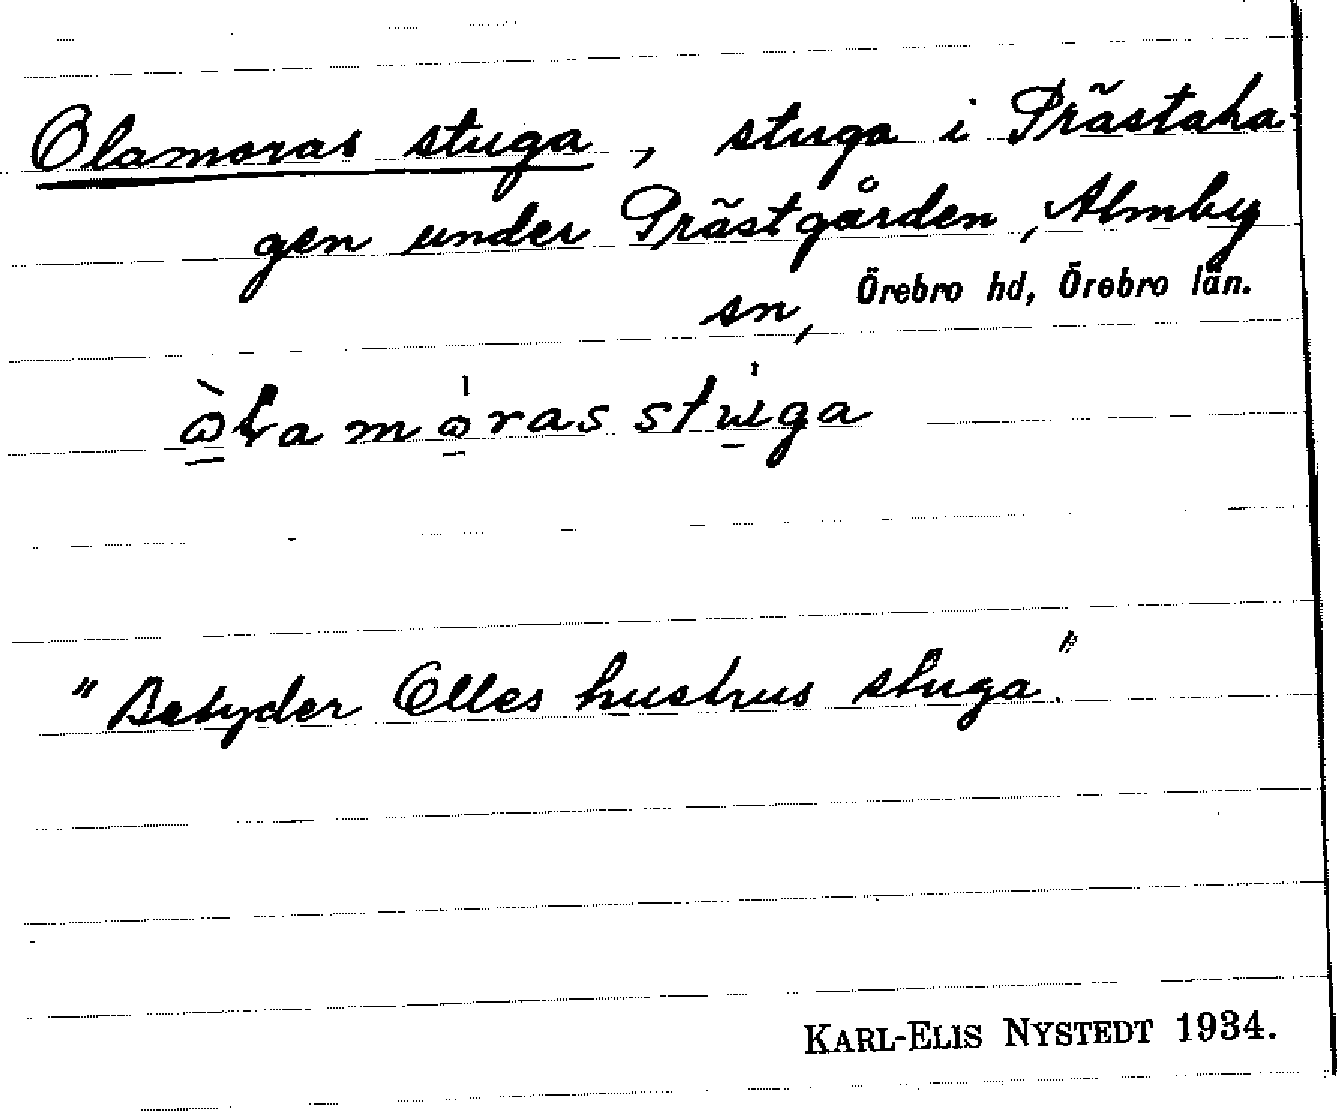 Olamoras stuga, stuga i Prästaha-
gen under Prästgården, Almby
sn, Örebro hd, Örebro län.
ꭥ̀ɽa mꭥ́ras stu̇ga
"Betyder Olles hustrus stuga."
KARL-ELIS NYSTEDT 1934.